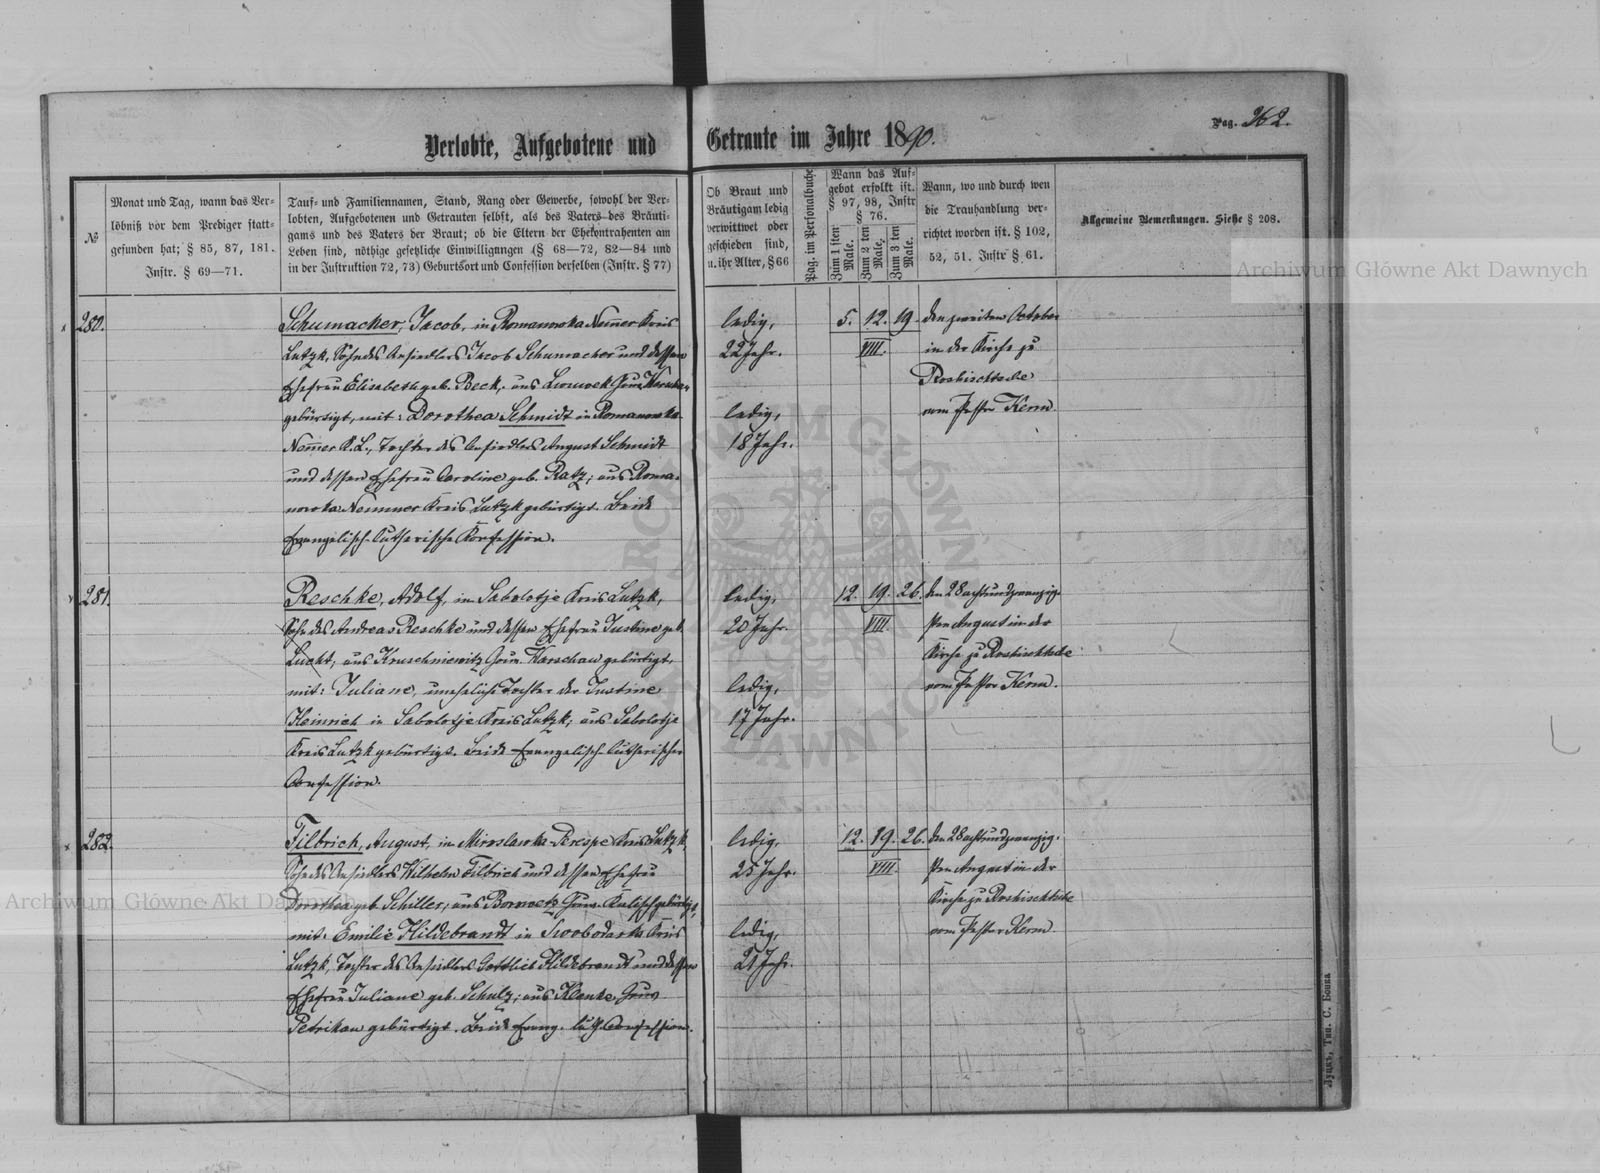 Pag. 262.
Verlobte, Aufgebotene und Getraute im Jahre 1890.
№
Monat und Tag, wann das Ver-
löbniß vor dem Prediger statt-
gefunden hat; § 85, 87, 181.
Instr. § 69—71.
Tauf- und Familiennamen, Stand, Rang oder Gewerbe, sowohl der Ver-
lobten, Aufgebotenen und Getrauten selbst, als des Vaters des Bräuti-
gams und des Vaters der Braut; ob die Eltern der Ehekontrahenten am
Leben sind, nöthige gesetzliche Einwilligungen (§ 68—72, 82—84 und
in der Instruktion 72, 73) Geburtsort und Confession derselben (Instr. § 77)
Ob Braut und
Bräutigam ledig
verwittwet oder
geschieden sind,
u. ihr Alter, § 66
Pag. im Personalbuche
Wann das Auf-
gebot erfolgt ist.
§ 97, 98, Instr
§ 76.
Zum 1 sten Male.
Zum 2 ten Male.
Zum 3 ten Male.
Wann, wo und durch wen
die Trauhandlung ver-
richtet worden ist. § 102,
52, 51. Instr § 61.
Allgemeine Bemerkungen. Siehe § 208.
280.
Schumacher, Jacob, in Romanowka Nemmer Kreis
Lutzk, Sohn des Ansiedlers Jacob Schumacher und dessen
Ehefrau Elisabeth geb. Beck, aus
gebürtigt, mit: Dorothea Schmidt in Romanowka
Nemmer K. L., Tochter des Ansiedlers August Schmidt
und dessen Ehefrau Caroline geb. Ratz; aus Roma-
nowka Nemmer Kreis Lutzk gebürtigt. Beide
Evangelisch-lutherische Konfession.
ledig,
22 Jahr.
ledig,
18 Jahr.
5. 12. 19.
VIII.
den zweiten October
in der Kirche zu
Roshischtsche
vom Pastor Kerm.
281.
Reschke, Adolf, in Sabolotje Kreis Lutzk,
Sohn des Andreas Reschke und dessen Ehefrau Justine geb.
Lucht, aus Kruschniewitz Gouv. Warschau gebürtigt,
mit: Juliane, uneheliche Tochter der Justine
Heinrich in Sabolotje Kreis Lutzk, aus Sabolotje
Kreis Lutzk gebürtigt. Beide Evangelisch-lutherischer
Confession.
ledig,
20 Jahr.
ledig,
17 Jahr.
12. 19. 26.
VIII.
den 28 achtundzwanzig-
sten August in der
Kirche zu Roshischtsche
vom Pastor Kerm.
282.
Filbrich, August, in Miroslawka Perespe Kreis Lutzk,
Sohn des Ansiedlers Wilhelm Filbrich und dessen Ehefrau
Dorothea geb. Schiller, aus Gouv. Kalisch gebürtigt,
mit: Emilie Hildebrandt in Swobodarka Kreis
Lutzk, Tochter des Ansiedlers Gottlieb Hildebrandt und dessen
Ehefrau Juliane geb. Schulz; aus Klenke, Gouv
Petrikau gebürtigt. Beide Evang. luth. Confession.
ledig,
25 Jahr.
ledig,
21 Jahr.
12. 19. 26.
VIII.
den 28 achtundzwanzig-
sten August in der
Kirche zu Roshischtsche
vom Pastor Kerm.
Луцкъ, Тип. С. Бонка
Archiwum Główne Akt Dawnych
Archiwum Główne Akt Dawnych
ARCHIWUM GŁÓWNE AKT DAWNYCH